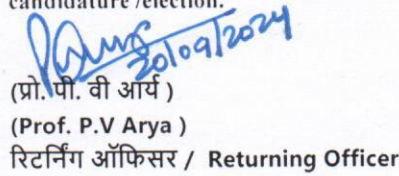 candidature /election.
20/09/2024
(प्रो. पी. वी आर्य )
(Prof. P.V Arya )
रिटर्निंग ऑफिसर / Returning Officer